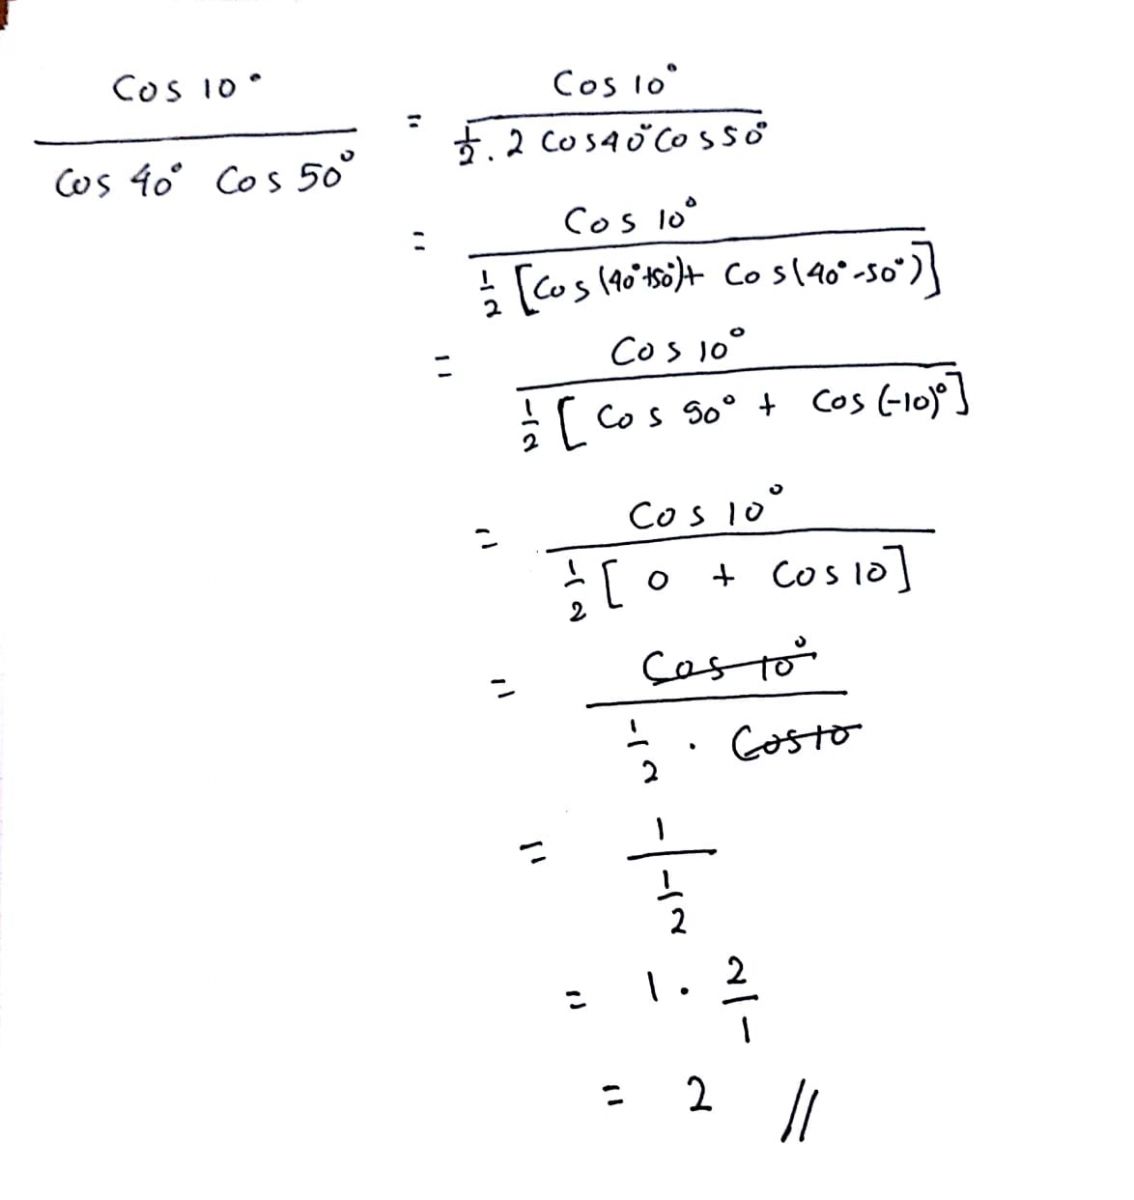 Cos 10° / Cos 40° Cos 50° = Cos 10° / 1/2 . 2 Cos40° Cos50°
= Cos 10° / 1/2 [Cos (40°+50°)+ Cos(40°-50°)]
= Cos 10° / 1/2 [ Cos 90° + Cos (-10)°]
= Cos 10° / 1/2 [ 0 + Cos 10]
= Cos 10° / 1/2 . Cos10
= 1 / 1/2
= 1 . 2/1
= 2 //